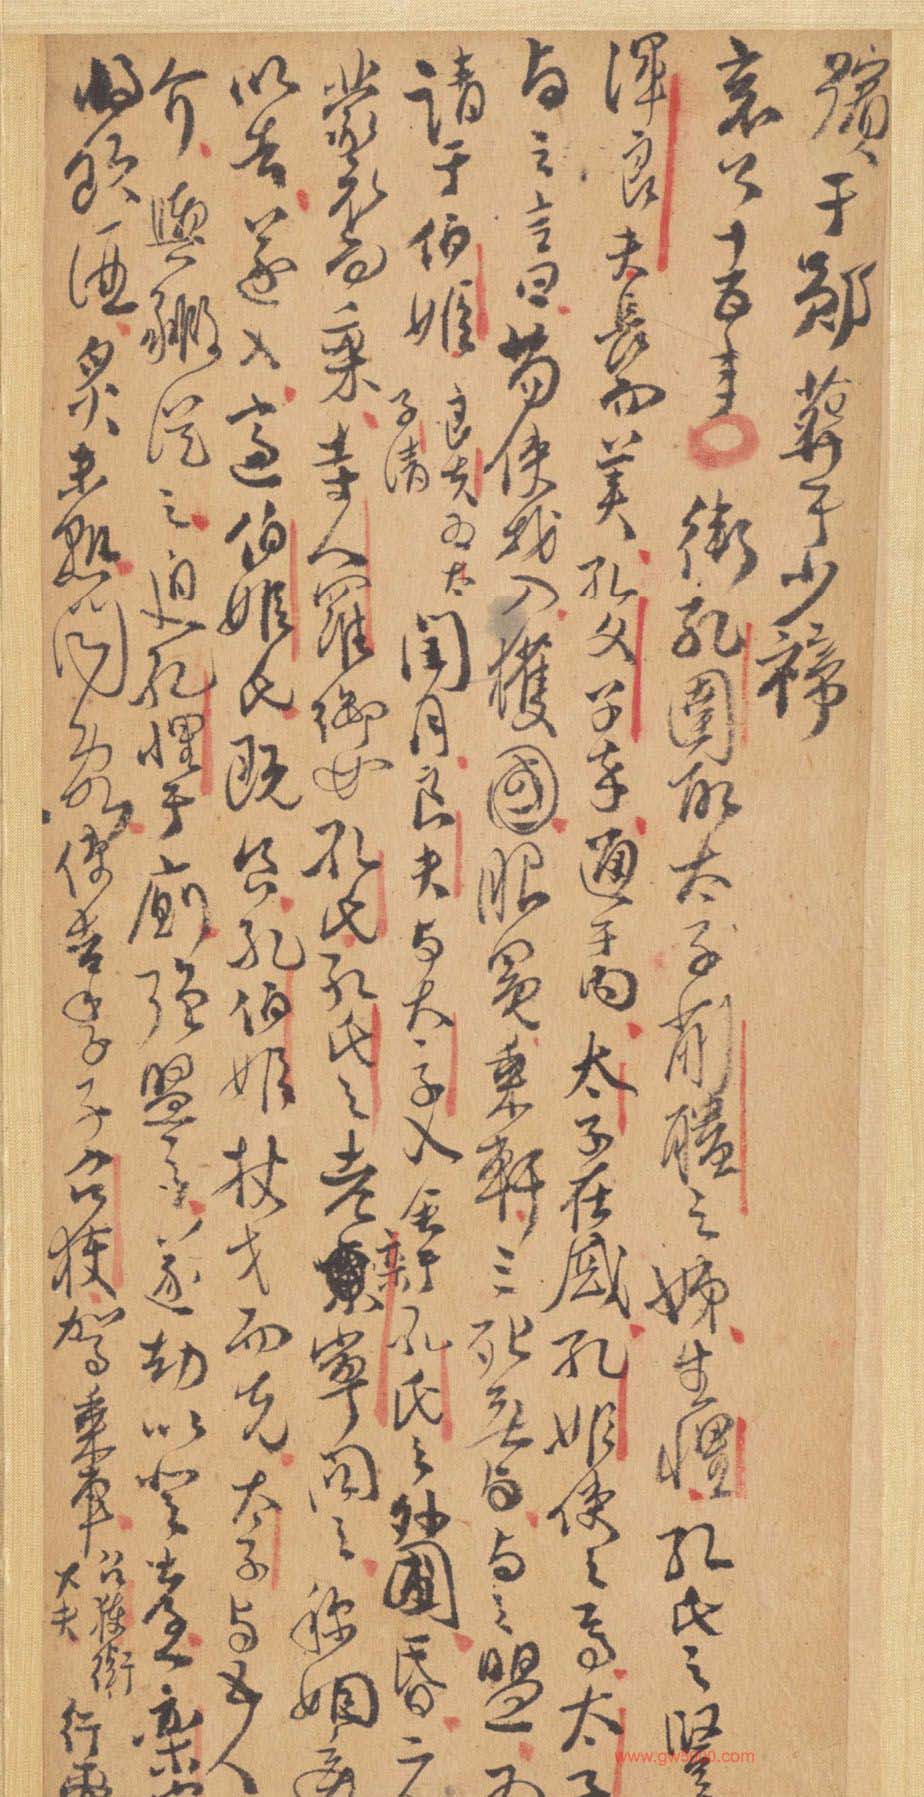 殯于鄖葬于少禘
哀公十五年 衛孔圉取太子蒯聵之姊生悝孔氏之豎
渾良夫長而美孔文子卒通于内太子在戚孔姬使之焉太子
与之言曰苟使我入獲國服冕乗軒三死無与与之盟为
請于伯姬 良夫为太 子請 閏月良夫与太子入舍于孔氏之外圃昏二人
蒙衣而乗寺人羅御如孔氏孔氏之老欒寧問之称姻妾
以告遂入適伯姬氏既食孔伯姬杖戈而先太子与五人
介輿豭從之迫孔悝于廁强盟之遂劫以登臺欒
将飲酒炙未熟聞乱使告季子召獲駕乗車 召獲衛 大夫 行爵
www.gw5000.com